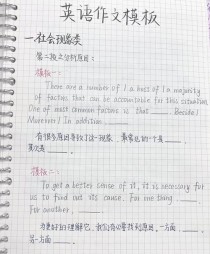 英语作文模板
一.社会现象类
第二段之分析原因:
模板一:
There are a number of / a host of / a majority
of factors that can be accountable for this situation.
One of most common factors is that ____. Besides /
Moreover / In addition ____.
有很多原因导致了这一现象,最常见的一个是____,
其次是____.
模板二:
To get a better sense of it, it is necessary for
us to find out its cause. For me thing, ____.
For another, ____.
为更好的理解它,我们有必要找到原因,一方面____,
另一方面____.